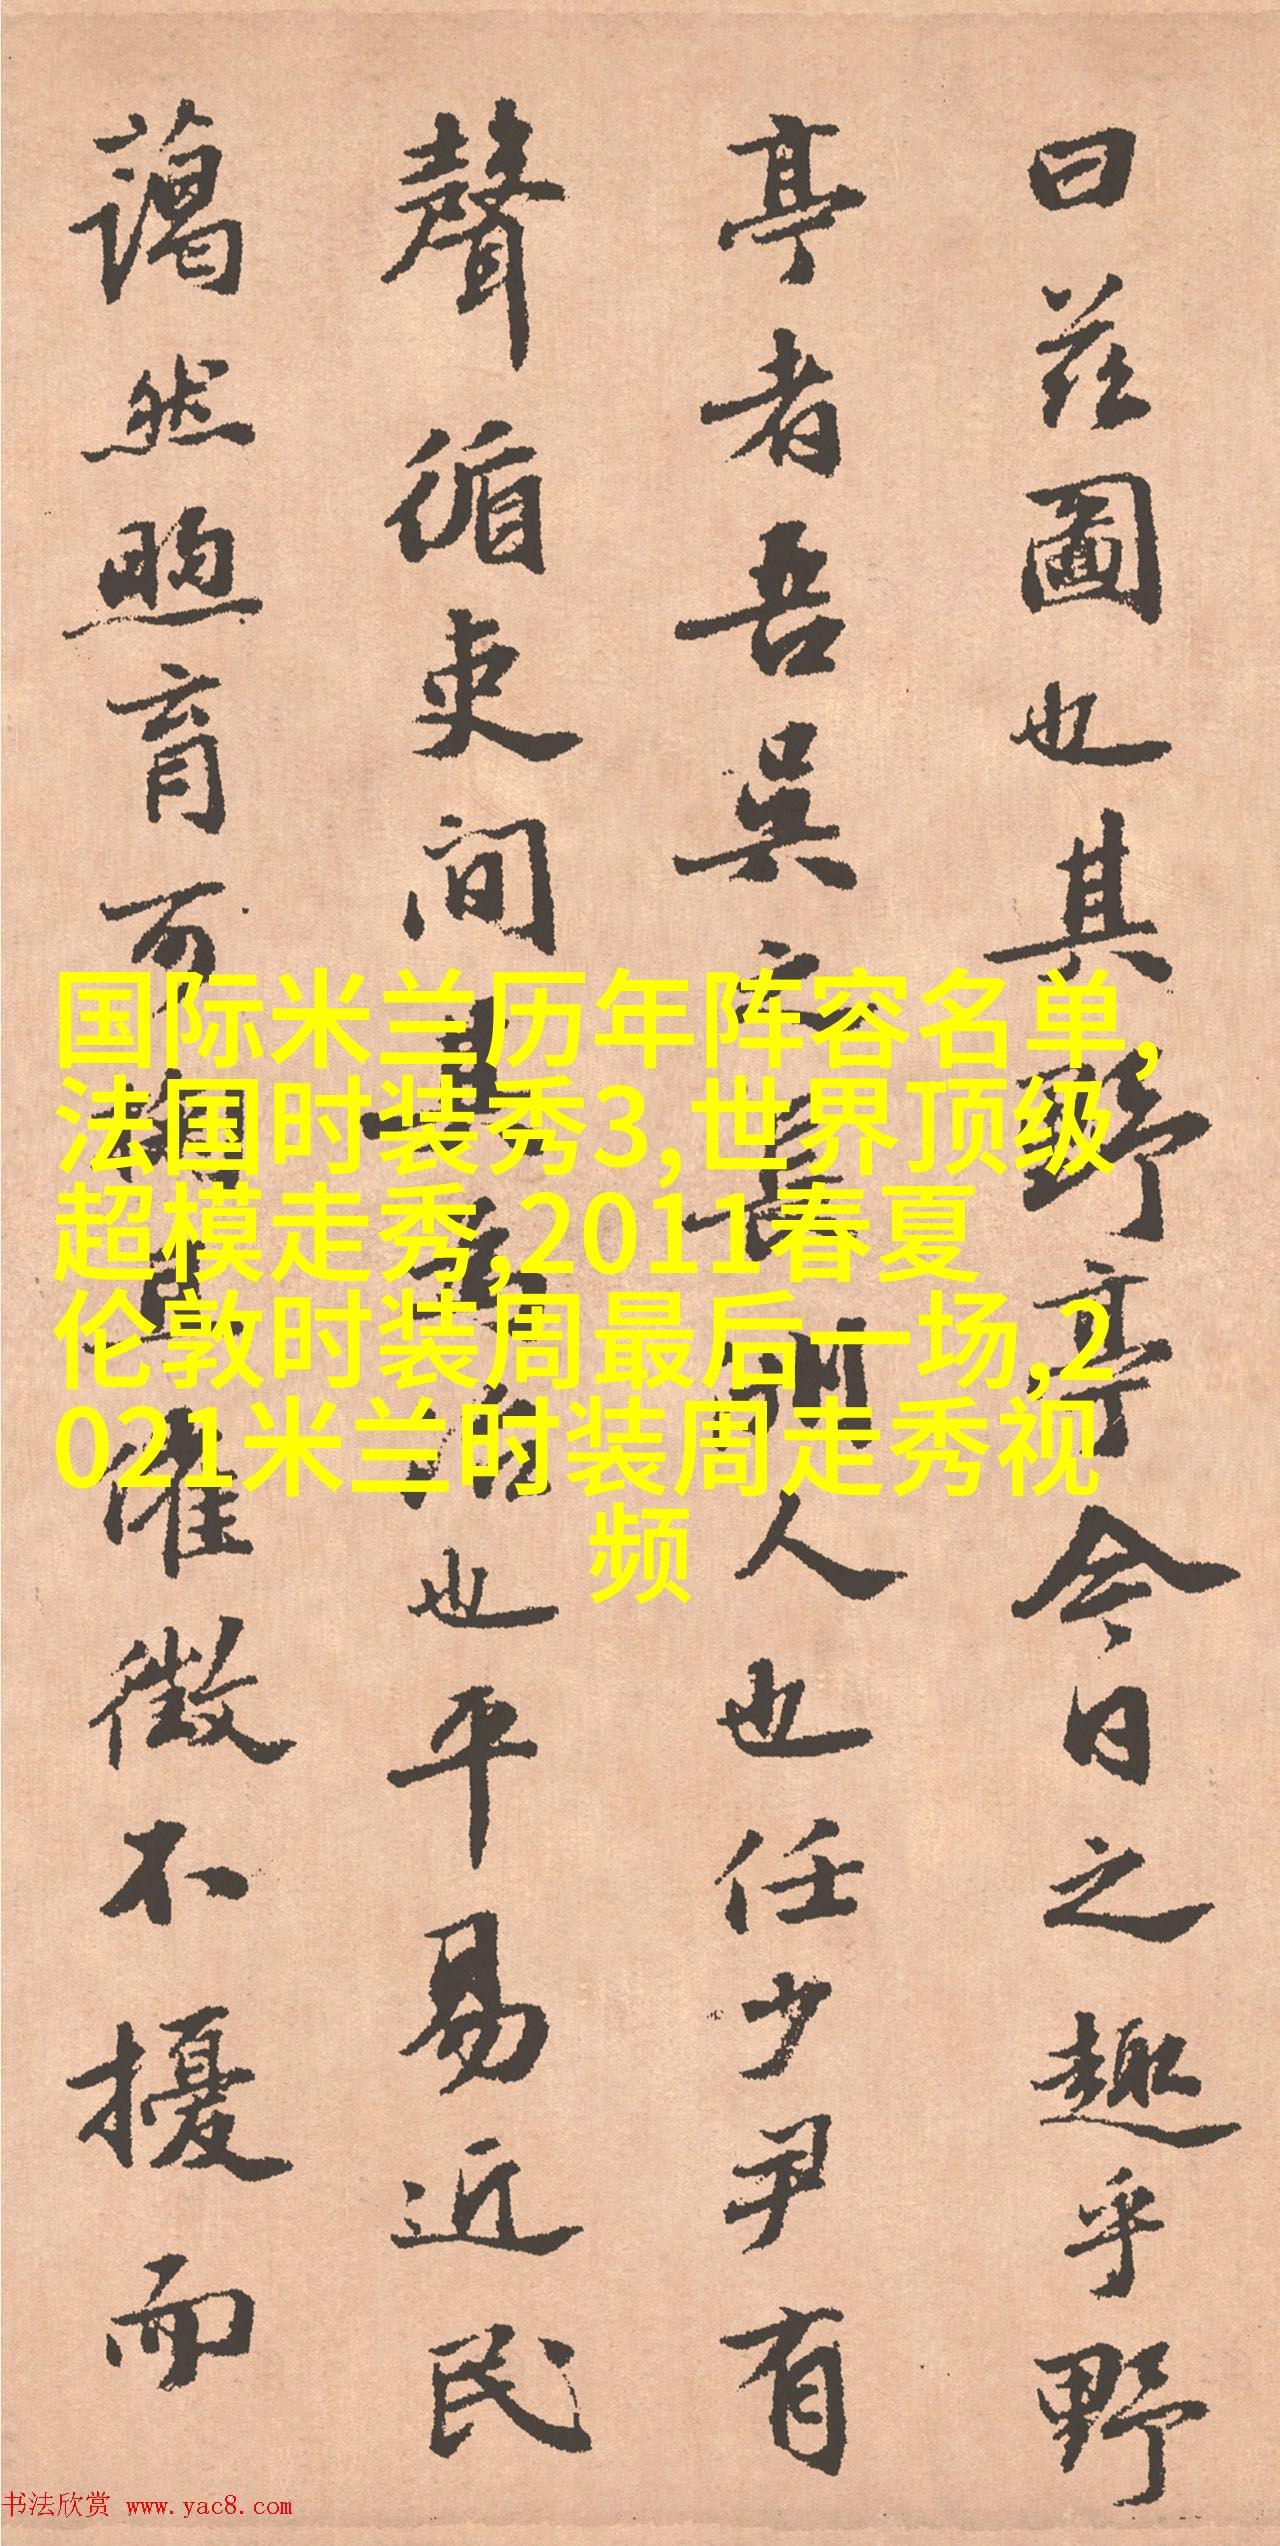 曰茲圖也其野亭今日之趣乎野
亭者吾吳之長訓人也任少尹有
聲循吏间其為治也平易近民
藹然煦育而撫之催徵不擾而
国际米兰历年阵容名单,
法国时装秀3,世界顶级
超模走秀,2011春夏
伦敦时装周最后一场,2
021米兰时装周走秀视
频
书法欣赏 www.yac8.com